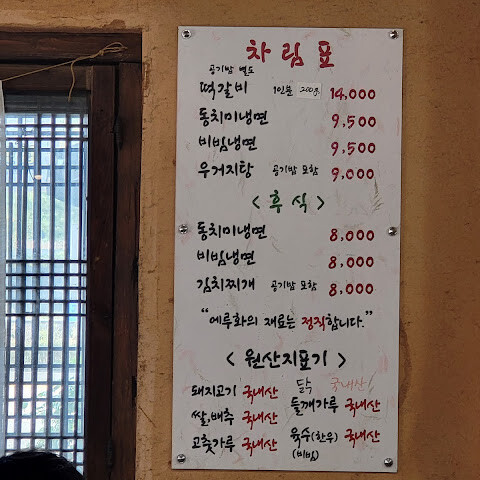 차림표
공기밥 별도
떡갈비 1인분 200g. 14,000
동치미냉면 9,500
비빔냉면 9,500
우거지탕 공기밥 포함 9,000
<후식>
동치미냉면 8,000
비빔냉면 8,000
김치찌개 공기밥 포함 8,000
"에루화의 재료는 정직합니다."
<원산지표기>
돼지고기 국내산 닭 국내산
쌀,배추 국내산 들깨가루 국내산
고춧가루 국내산 육수(한우) 국내산
(비빔)